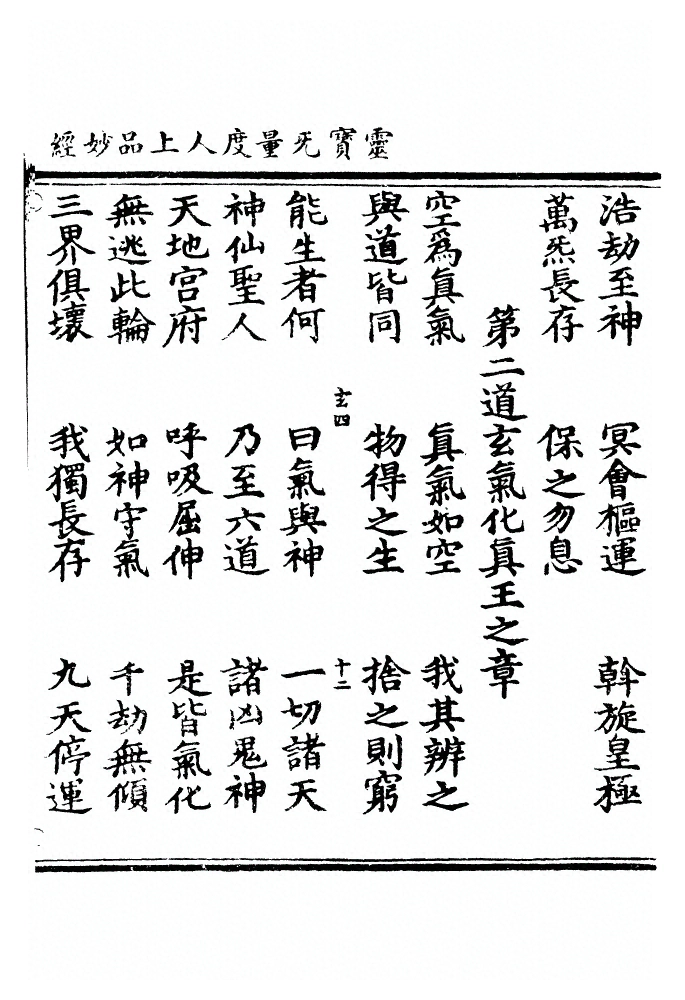 靈寶旡量度人上品妙經
浩劫至神　冥會樞運　斡旋皇極
萬炁長存　保之勿息
第二道玄氣化真王之章
空爲真氣　真氣如空　我其辨之
與道皆同　物得之生　捨之則窮
玄四　十二
能生者何　曰氣與神　一切諸天
神仙聖人　乃至六道　諸凶鬼神
天地宮府　呼吸屈伸　是皆氣化
無逃此輪　如神守氣　千劫無傾
三界俱壞　我獨長存　九天停運